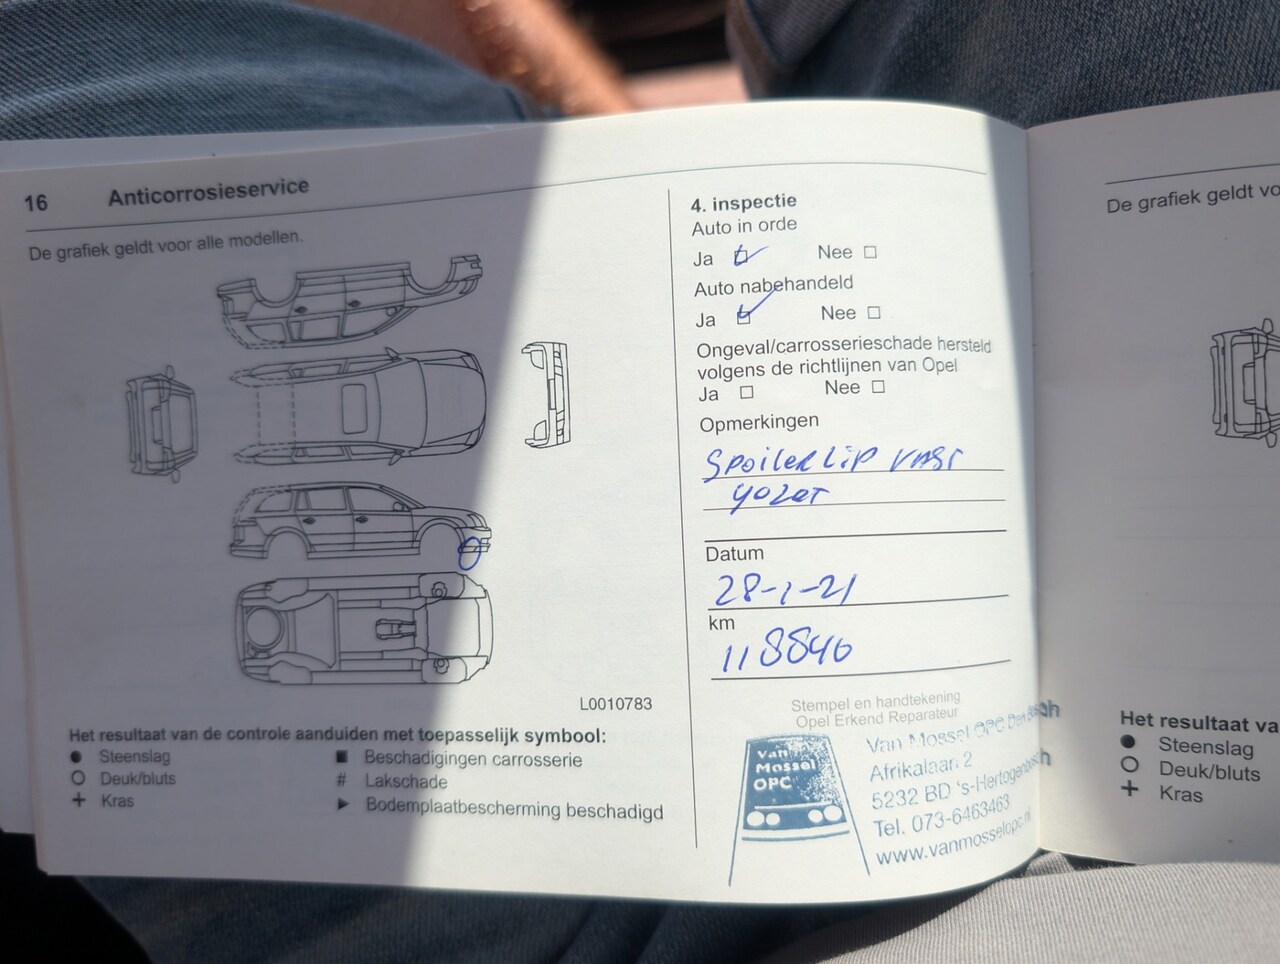 16 Anticorrosieservice
De grafiek geldt voor alle modellen.
L0010783
Het resultaat van de controle aanduiden met toepasselijk symbool:
● Steenslag
○ Deuk/bluts
+ Kras
■ Beschadigingen carrosserie
# Lakschade
▶ Bodemplaatbescherming beschadigd
4. inspectie
Auto in orde
Ja Nee
Auto nabehandeld
Ja Nee
Ongeval/carrosserieschade hersteld
volgens de richtlijnen van Opel
Ja Nee
Opmerkingen
Spoiler lip vast
gozet
Datum
28-1-21
km
118840
Stempel en handtekening
Opel Erkend Reparateur
Van
Mossel
OPC
Van Mossel OPC Den Bosch
Afrikalaan 2
5232 BD 's-Hertogenbosch
Tel. 073-6463463
www.vanmosselopc.nl
De grafiek geldt vo
Het resultaat va
● Steenslag
○ Deuk/bluts
+ Kras